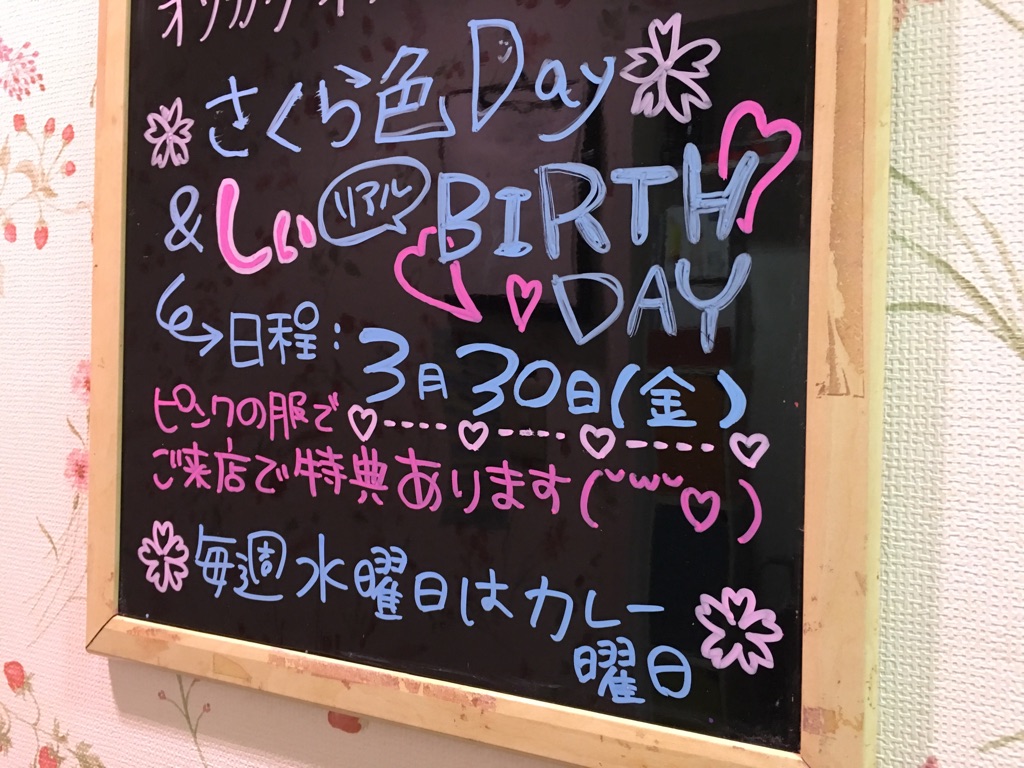 さくら色Day
&しぃ リアル BIRTH
DAY
日程:3月30日(金)
ピンクの服で♡----♡----♡----♡
ご来店で特典あります(˘ω˘♡)
毎週水曜日はカレー
曜日